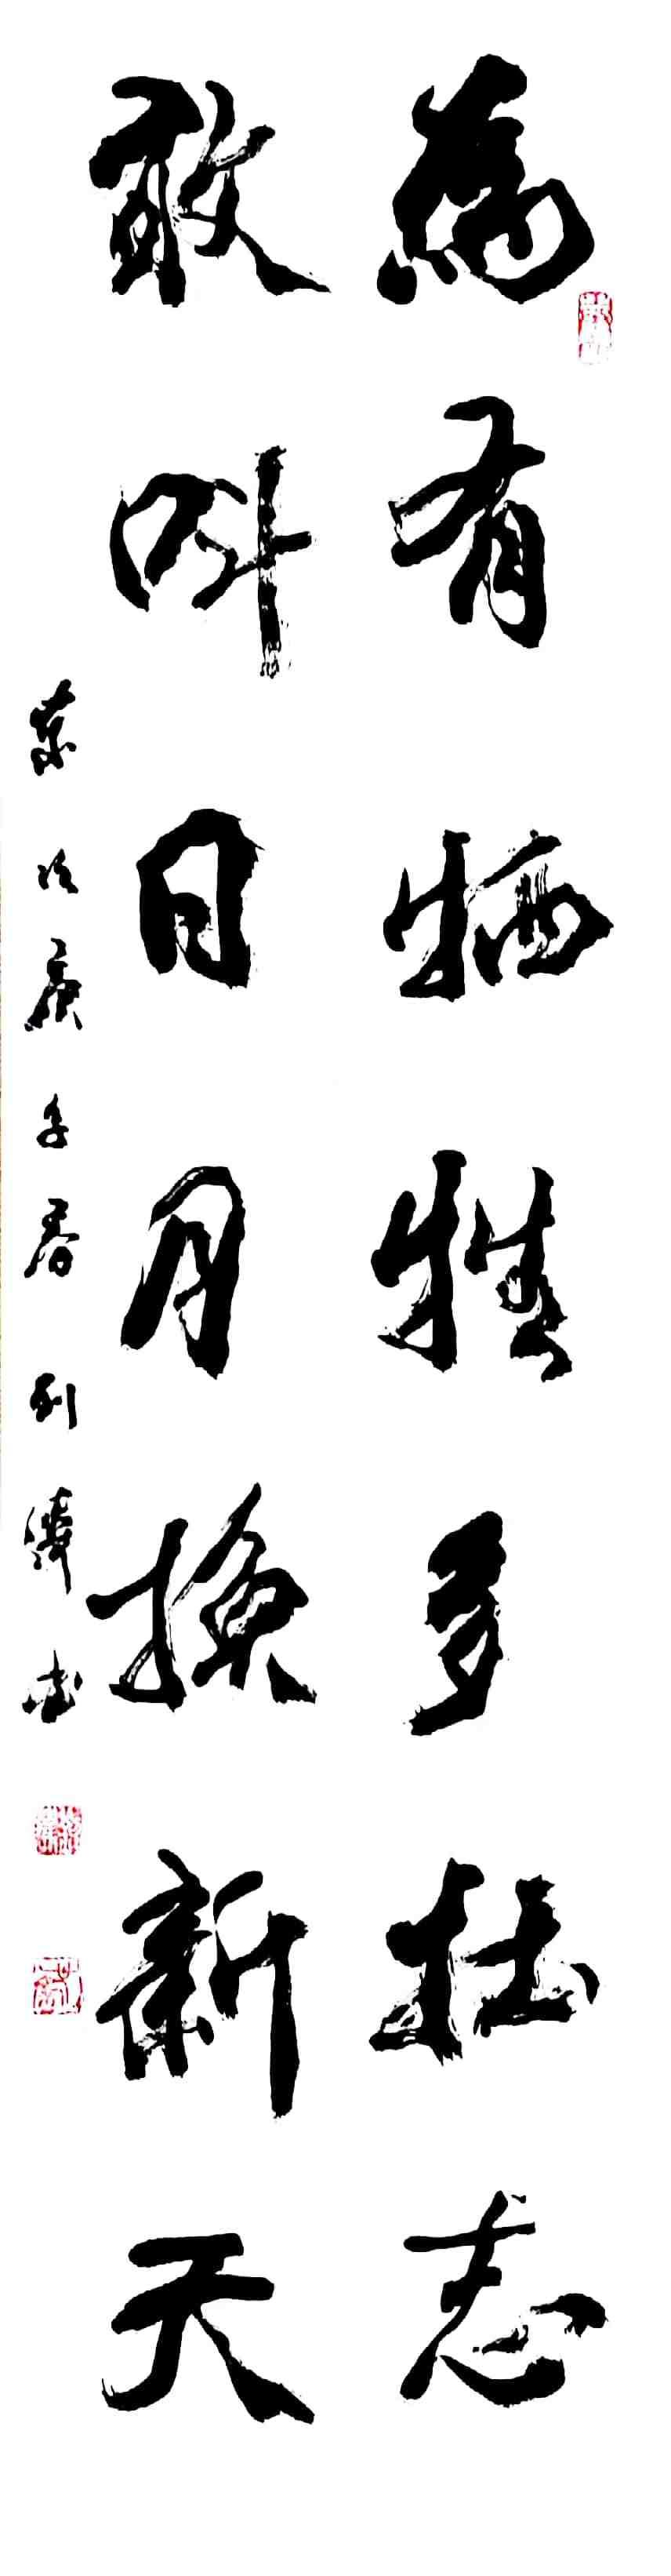 為有犧牲多壮志
敢叫日月換新天
庚子春 書